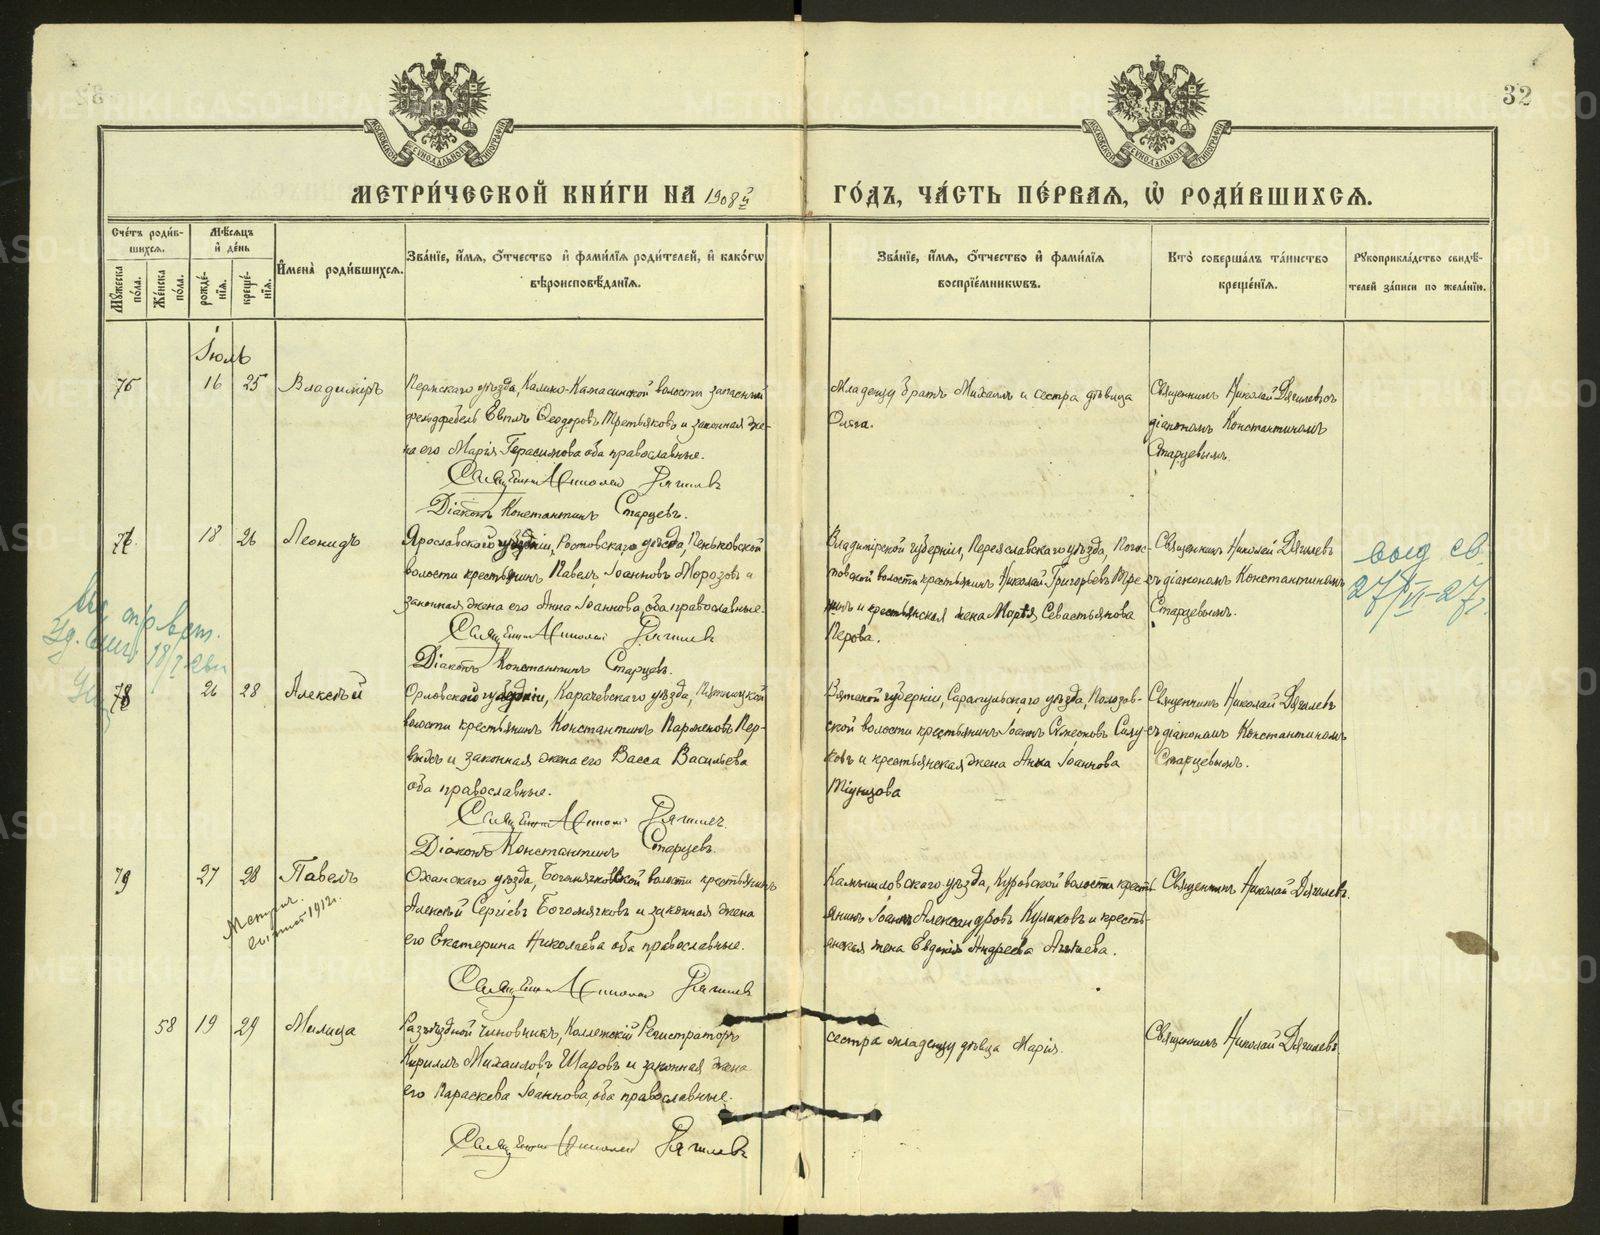 32
МОСКОВСКОЙ СѴНОДАЛЬНОЙ ТИПОГРАФІИ
МОСКОВСКОЙ СѴНОДАЛЬНОЙ ТИПОГРАФІИ
МЕТРИ́ЧЕСКОЙ КНИ́ГИ НА 1908й
ГО́ДЪ, ЧА́СТЬ ПЕ́РВАЯ, Ѡ҆ РОДИ́ВШИХСЯ.
Сче́тъ роди́в-
шихся.
Мꙋжеска по́ла.
Же́нска по́ла.
Мѣ́сяцъ
и҆ де́нь
рожде́-
нїя.
креще́-
нїя.
И҆мена̀ роди́вшихся.
Зва́нїе, и҆́мя, ѻ҆́тчество и҆ фами́лїя роди́телей, и҆ како́гѡ
вѣроисповѣ́данїя.
Зва́нїе, и҆́мя, ѻ҆́тчество и҆ фами́лїя
воспрїе́мникѡвъ.
Кто̀ соверша́лъ та́инство
креще́нїя.
Рꙋкоприкла́дство свидѣ́-
телей за́писи по жела́нїю.
Іюль
16 25 Владиміръ
Пермскаго уѣзда, Калино-Камасинской волости запасный
фельдфебель Евѳимъ Ѳеодоровъ Третьяковъ и законная же-
на его Марія Герасимова оба православные.
Священникъ Николай Дягилевъ
Діаконъ Константинъ Старцевъ.
Младенцу братъ Михаилъ и сестра дѣвица
Ольга.
Священникъ Николай Дягилевъ съ
діакономъ Константиномъ
Старцевымъ.
18 26 Леонидъ
Ярославской губерніи, Ростовскаго уѣзда,
волости крестьянинъ Павелъ Іоанновъ Морозовъ и
законная жена его Анна Іоаннова, оба православные.
Священникъ Николай Дягилевъ
Діаконъ Константинъ Старцевъ.
Владимірской губерніи, Переяславскаго уѣзда,
волости крестьянинъ Николай Григорьевъ
и крестьянская жена Марія Севастьянова
Перова.
Священникъ Николай Дягилевъ
съ діакономъ Константиномъ
Старцевымъ.
78 26 28 Алексѣй
Орловской губерніи, Карачевскаго уѣзда,
волости крестьянинъ Константинъ Парменовъ Пер-
и законная жена его Васса Васильева
оба православные.
Священникъ Николай Дягилевъ.
Діаконъ Константинъ Старцевъ.
Вятской губерніи, Сарапульскаго уѣзда, Полозов-
ской волости крестьянинъ Іоаннъ Симеоновъ
и крестьянская жена Анна Іоаннова
Священникъ Николай Дягилевъ
съ діакономъ Константиномъ
Старцевымъ.
79 27 28 Павелъ
Метрич.
1912 г.
Оханскаго уѣзда, волости крестьянинъ
Алексѣй Сергіевъ Богомягковъ и законная жена
его Екатерина Николаева оба православные.
Священникъ Николай Дягилевъ
Камышловскаго уѣзда, Куровской волости кресть-
янинъ Іоаннъ Александровъ Куликовъ и кресть-
янская жена Евдокія Андреева
Священникъ Николай Дягилевъ.
58 19 29 Милица
Разъѣздной чиновникъ, Коллежскій Регистраторъ
Кириллъ Михаиловъ Шаровъ и законная жена
его Параскева Іоаннова, оба православные.
Священникъ Николай Дягилевъ
сестра младенцу дѣвица Марія.
Священникъ Николай Дягилевъ